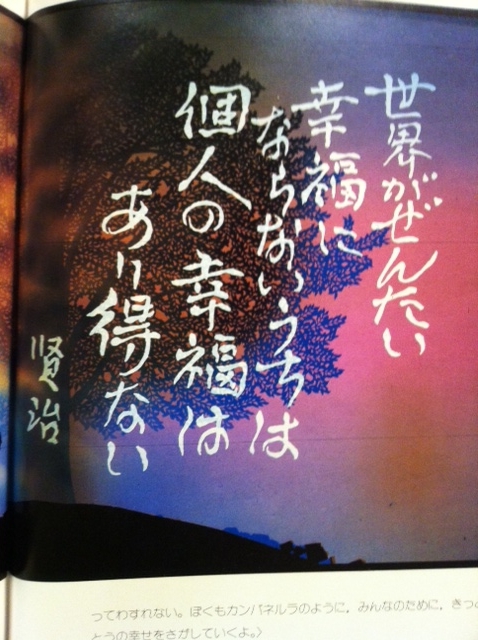 世界がぜんたい
幸福に
ならないうちは
個人の幸福は
あり得ない
賢治
ってわすれない。ぼくもカンパネルラのように，みんなのために，きっ
とうの幸せをさがしていくよ。〉